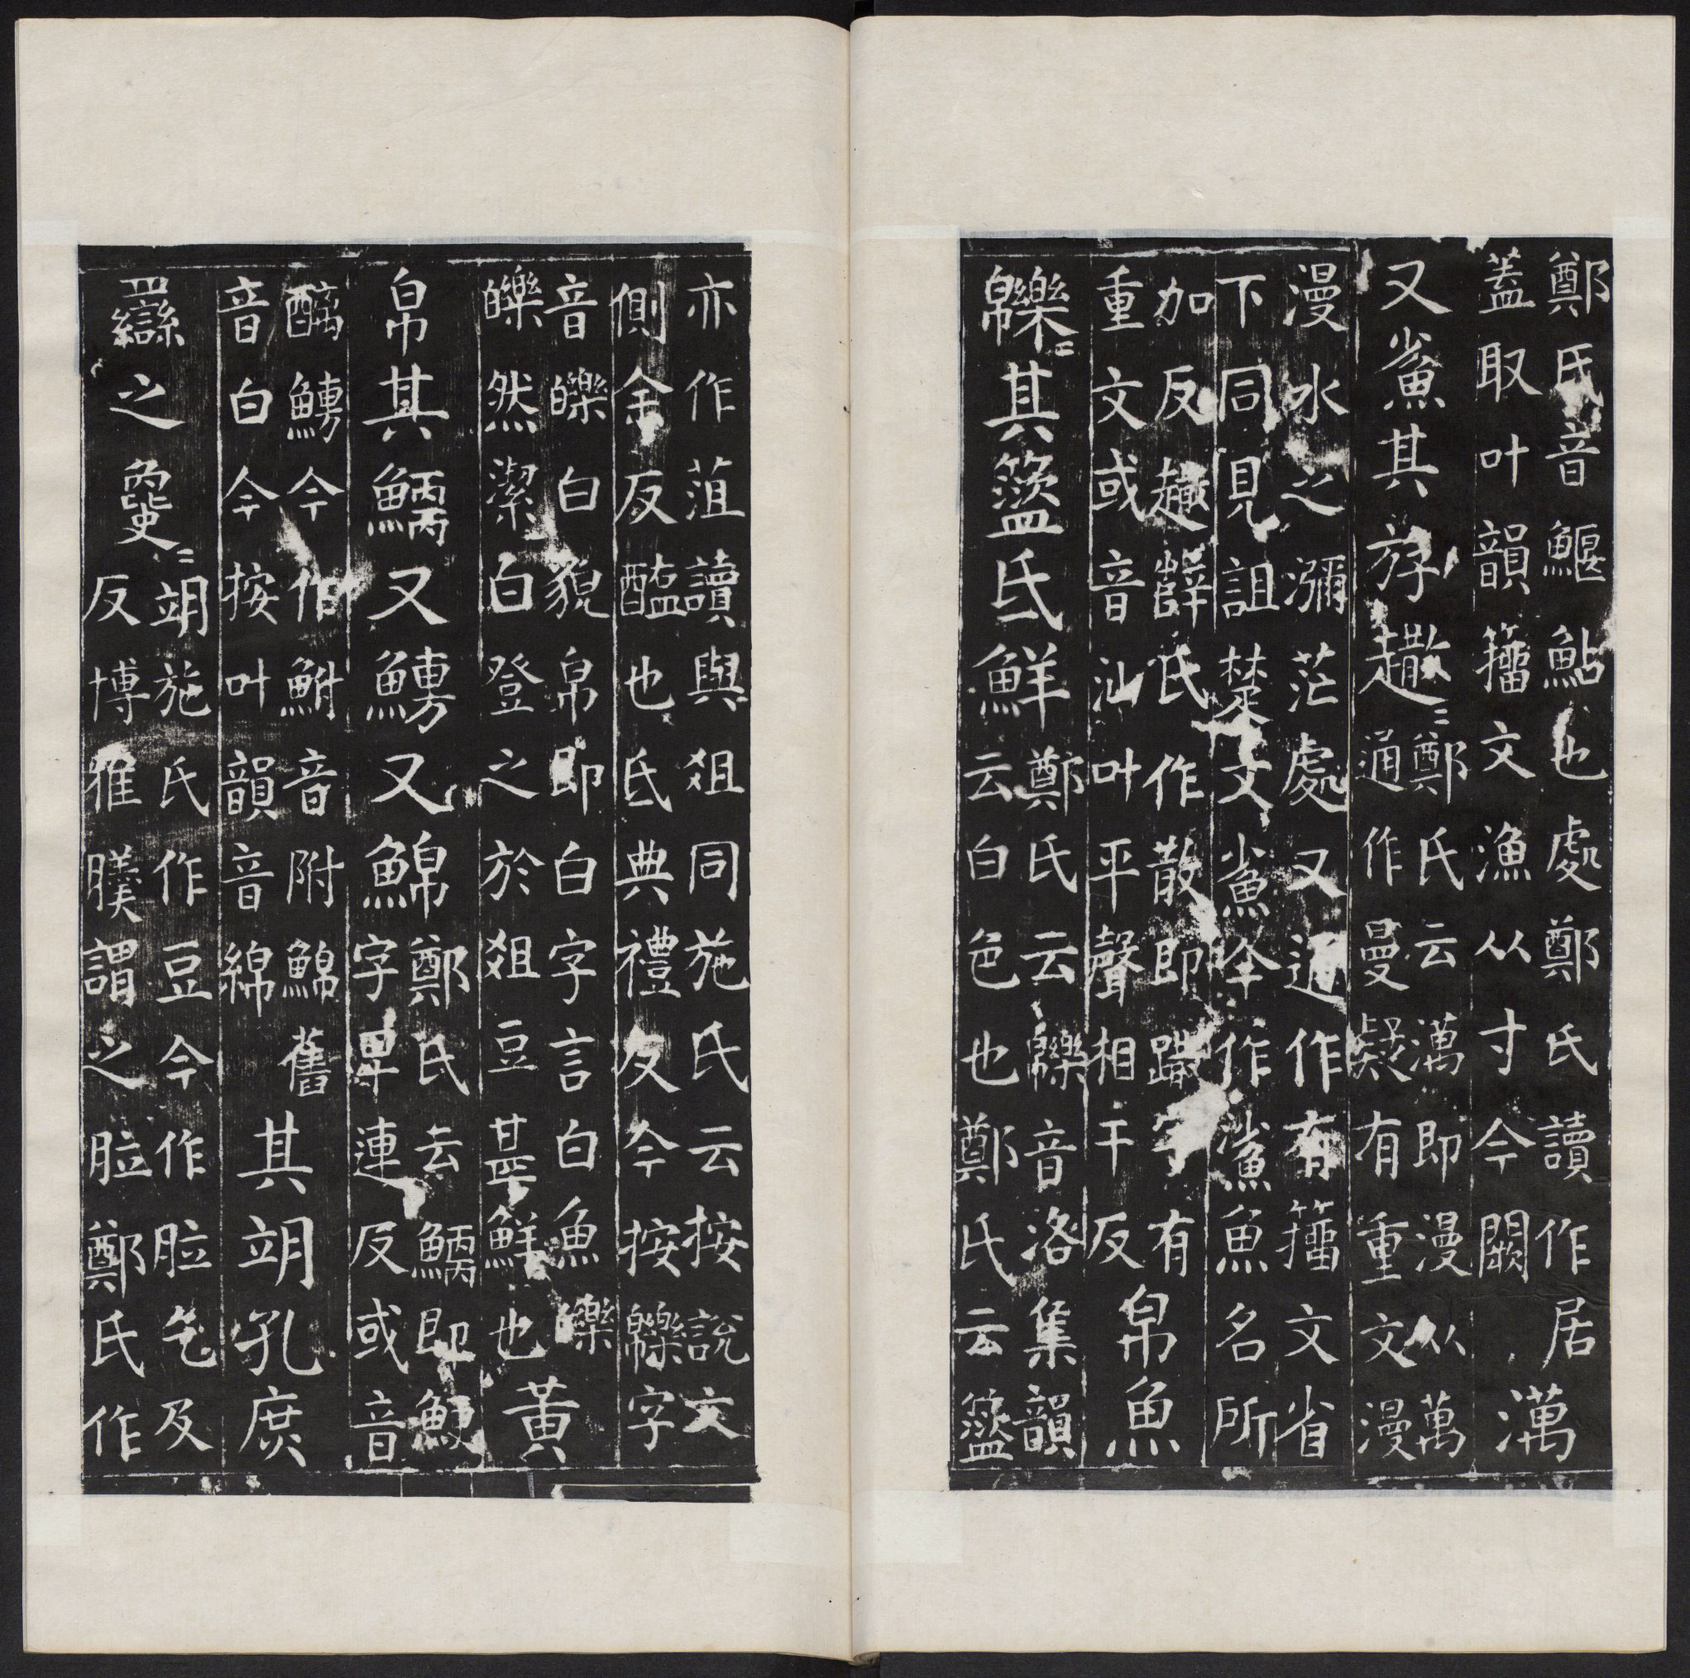 鄭氏音鰋鮎也處鄭氏讀作居
蓋取叶韻籀文漁从寸今闕
澫
又鯊其斿
趩〻鄭氏云澫即漫从萬
通作曼疑有重文漫
漫水之瀰茫處又通作有籀文省
下同見詛楚文鯊今作鯊魚名所
加反趩薛氏作散即䟎字有
重文或音汕叶平聲相干反
帛魚
皪〻其簜氐鮮
鄭氏云皪音洛集韻
云白色也鄭氏云簜
亦作菹讀與俎同施氏云按說文
側余反醢也氐典禮反今按皪字
音皪白貌帛即白字言白魚皪
皪然潔白登之於俎豆甚鮮也
黃
帛其鯿又鰟又鯞
鄭氏云鯿即鯁
字卑連反或音
䤈鰟今作鮒音附鯞舊
音白今按叶韻音綿
其翊孔庶
臠之㲋〻
翊施氏作豆今作脰乞及
反博雅䐢謂之脰鄭氏作